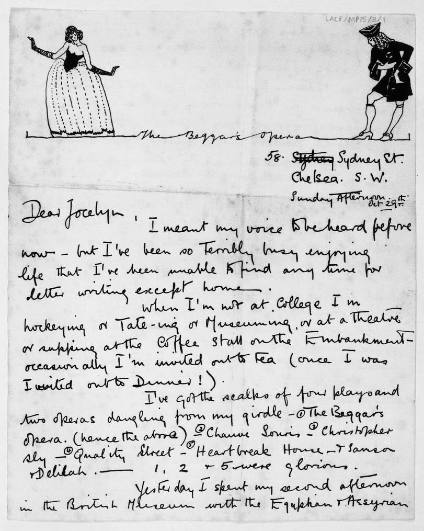 LACE/MP15/B/1
The Beggar's Opera
58. Sydney Sydney St.
Chelsea. S. W.
Sunday Afternoon
Oct 29th
Dear Jocelyn,
I meant my voice to be heard before
now – but I've been so terribly busy enjoying
life that I've been unable to find any time for
letter writing except home.
When I'm not at College I'm
hockeying or Tate-ing or Museuming, or at a theatre
or supping at the Coffee Stall on the Embankment –
occasionally I'm invited out to tea (once I was
Invited out to Dinner!).
I've got the scalps of four plays and
two operas dangling from my girdle – ① The Beggar's
opera. (hence the above) ② Chauve Souris – ③ Christopher
Sly – ④ Quality Street – ⑤ Heartbreak House – & Samson
& Delilah. — 1, 2 & 5 were glorious.
Yesterday I spent my second afternoon
in the British Museum with the Egyptian & Assyrian